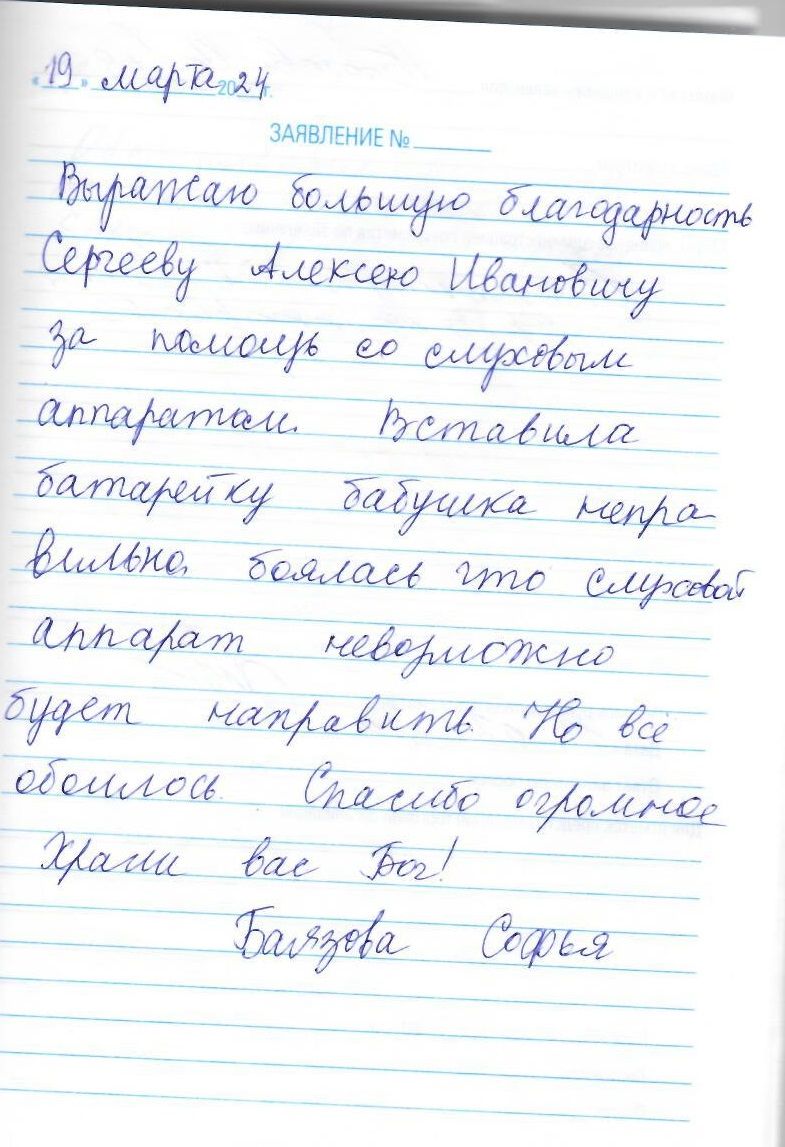 «19» марта 2024 г.
ЗАЯВЛЕНИЕ №
Выражаю большую благодарность
Сергееву Алексею Ивановичу
за помощь со слуховым
аппаратом. Вставила
батарейку бабушка непра
вильно, боялась что слуховой
аппарат невозможно
будет направить. Но всё
обошлось. Спасибо огромное
Храни вас Бог!
Баязова Софья